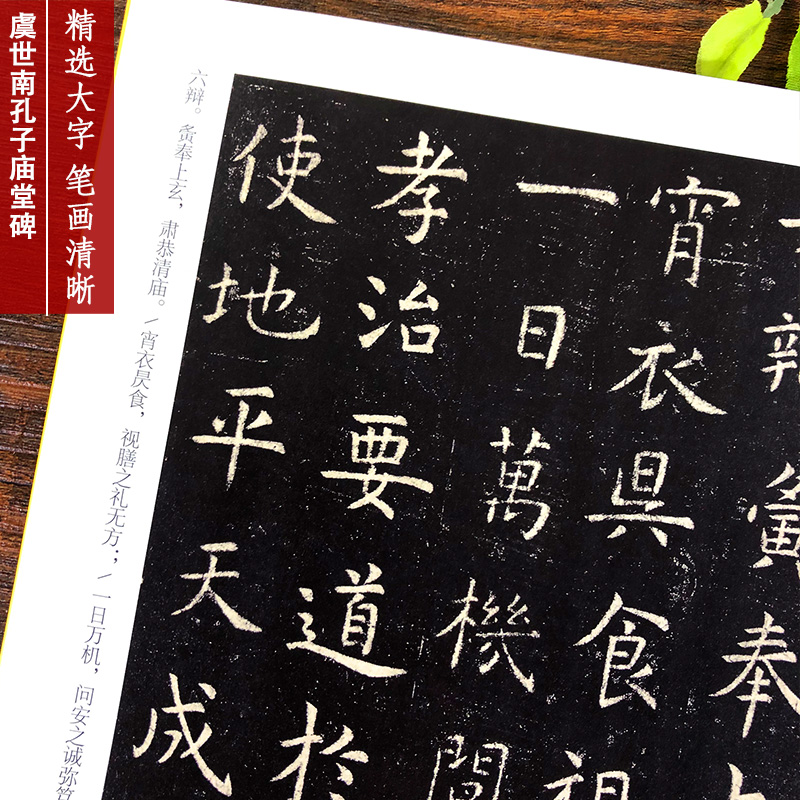 精选大字 笔画清晰
虞世南孔子庙堂碑
夤奉
宵衣昃食
一日萬機
孝治要道於
使地平天成
六辩。夤奉上玄，肃恭清庙。/宵衣昃食，视膳之礼无方；/一日万机，问安之诚弥